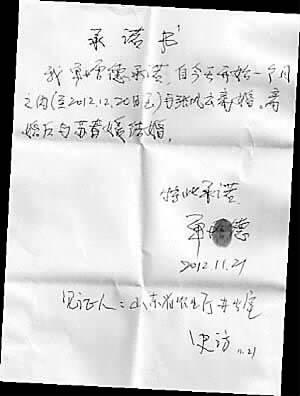 承诺书
我单增德承诺,自今天开始一个月
之内(至2012.12.20日止)与张凤云离婚。离
婚后与苏春媛结婚。
特此承诺
单增德
2012.11.21
见证人:山东省农业厅办公室
史访 11.21